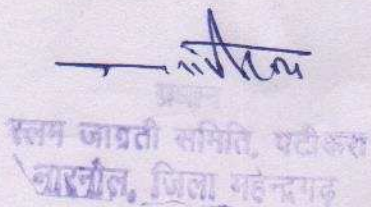 प्रधान
स्लम जाग्रती समिति, पटीकरा
नारनौल, जिला महेन्द्रगढ़